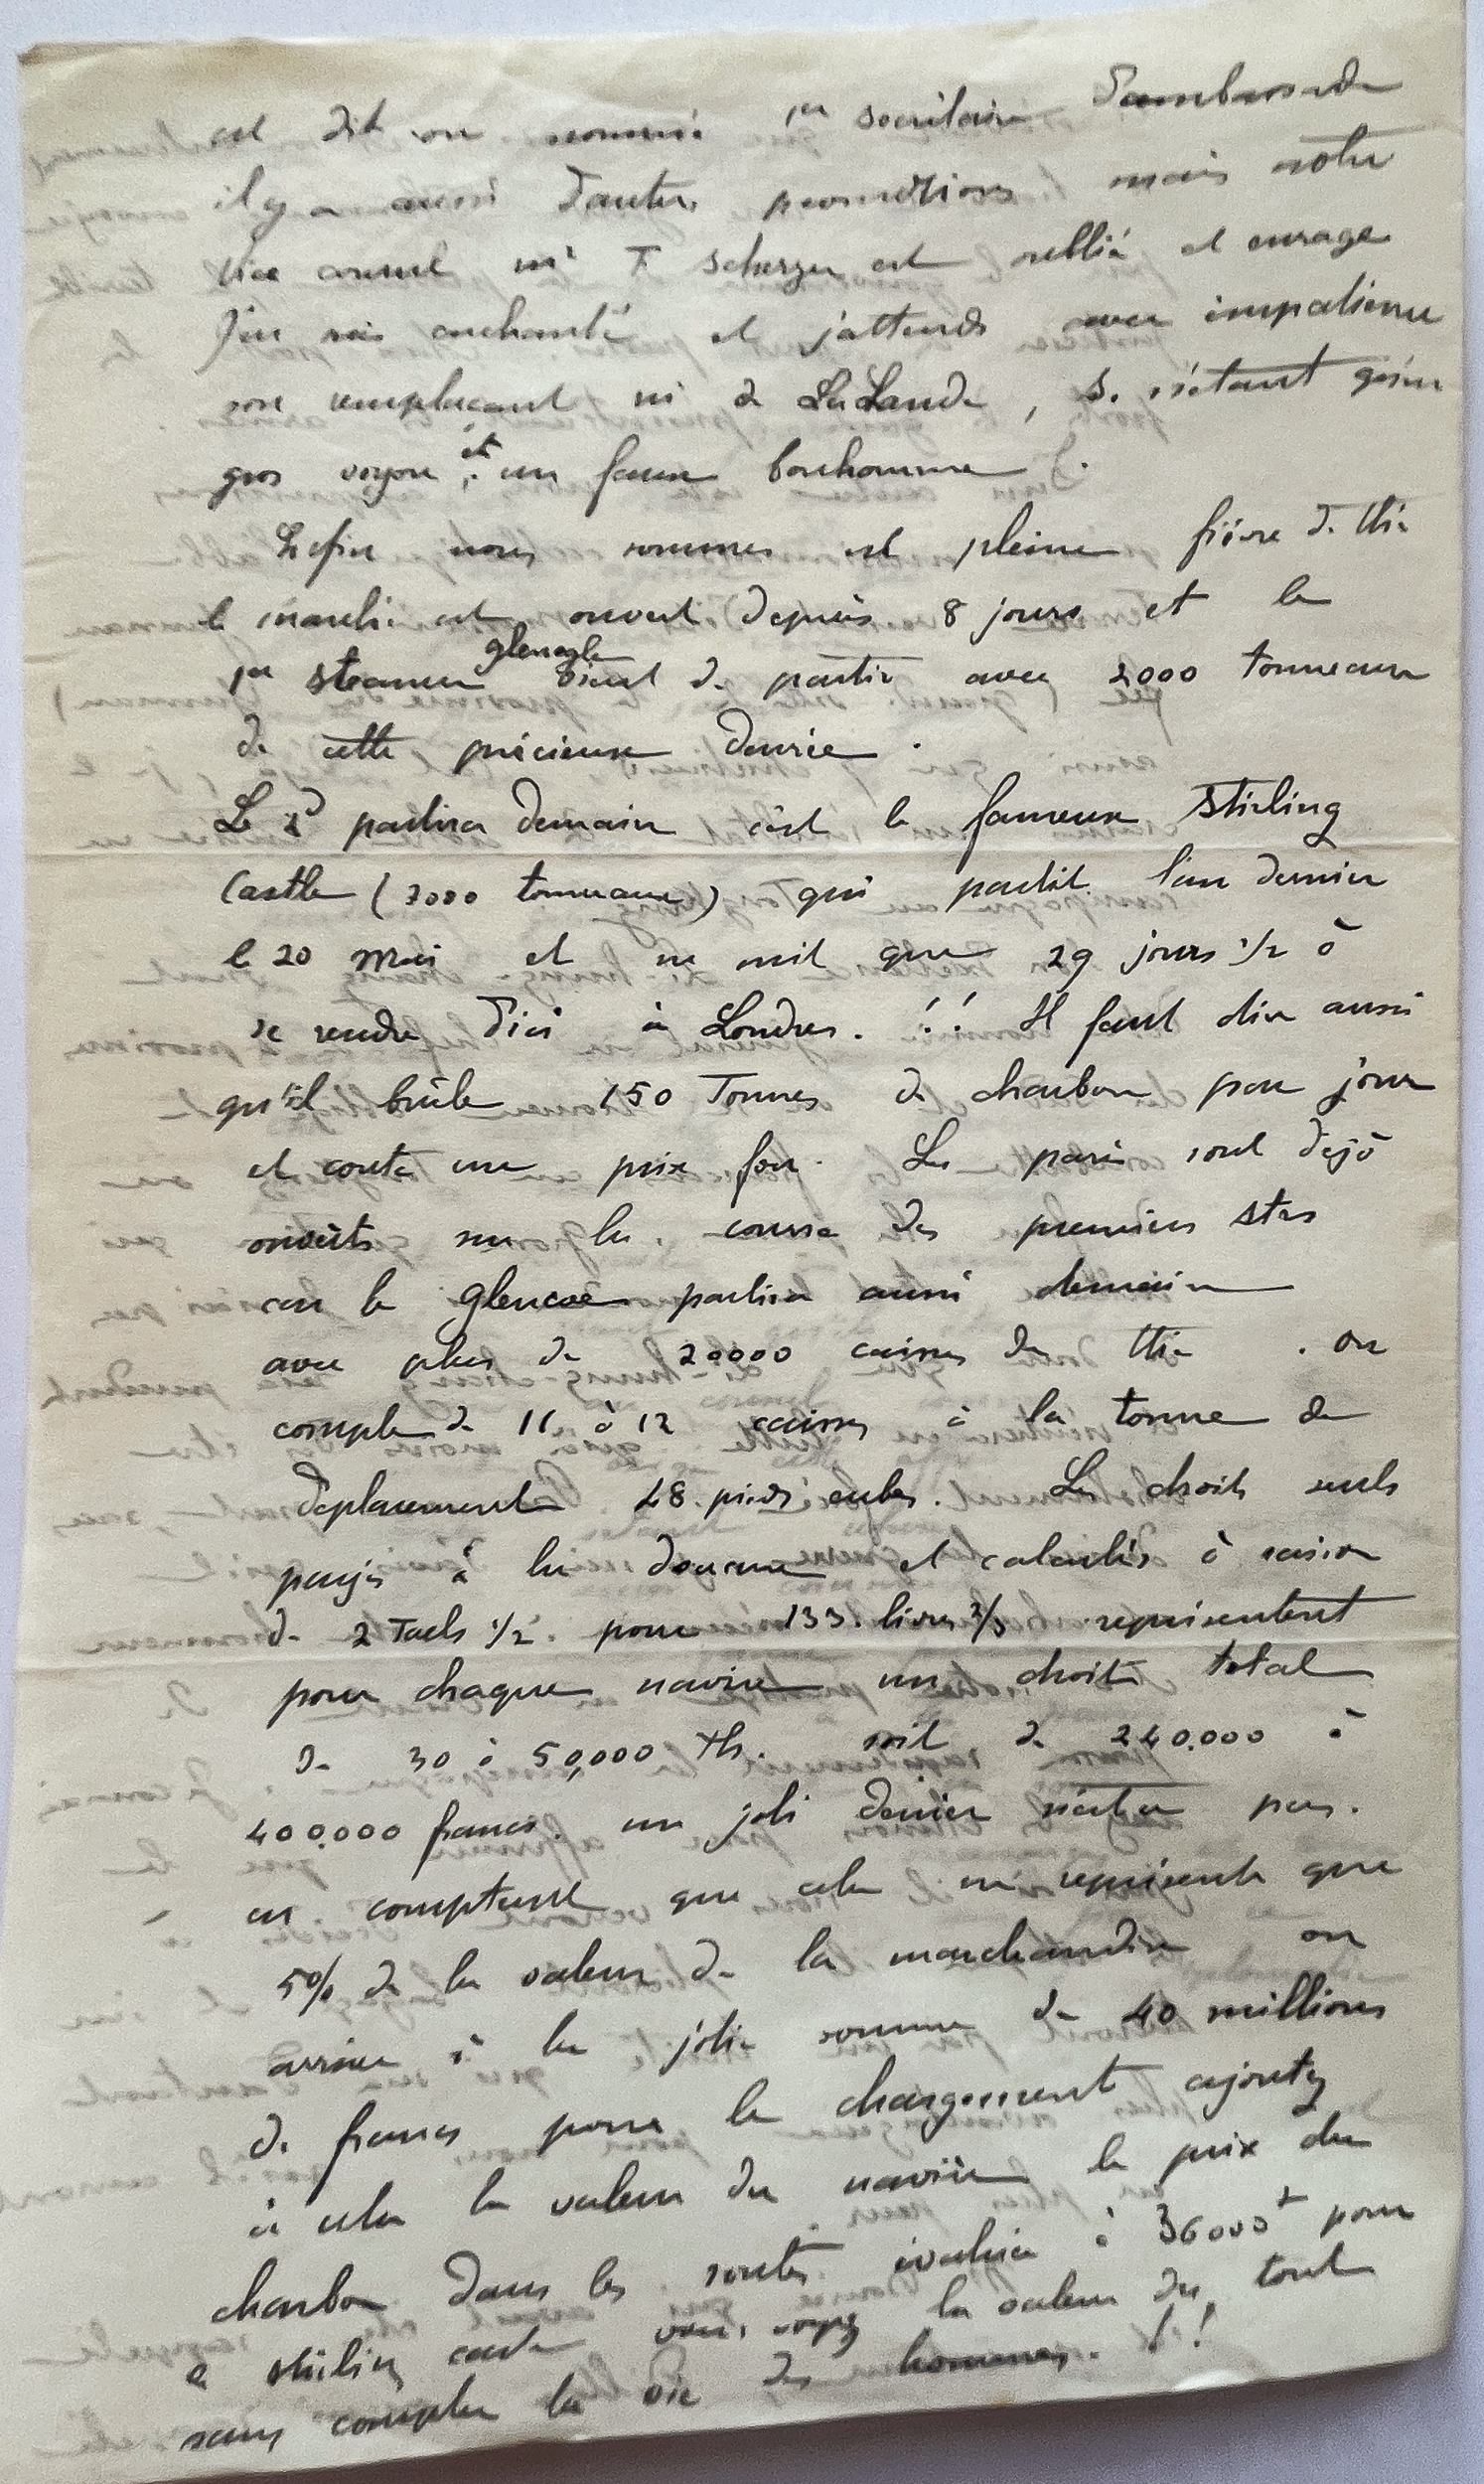 est dit on nommé 1er secrétaire d'ambassade
il y a aussi d'autres promotions mais notre
vice consul mr F Scherzer est oublié et enrage
J'en suis enchanté et j'attends avec impatience
son remplaçant mr de LaLande, S. n'étant qu'un
gros voyou et un faux bonhomme.
Enfin nous sommes en pleine fièvre de thé
le marché est ouvert depuis 8 jours et le
1er steamer glenogle vient de partir avec 2000 tonneaux
de cette précieuse denrée.
Le 2d partira demain c'est le fameux Stirling
Castle (3000 tonneaux) qui partit l'an dernier
le 20 Mai et ne mit que 29 jours 1/2 à
se rendre d'ici à Londres. !! Il faut dire aussi
qu'il brûle 150 Tonnes de charbon par jour
et coute un prix fou. Les paris sont déjà
ouverts sur la course des premiers strs
car le Glencoe partira aussi demain
avec plus de 20000 caisses de thé. on
compte de 11 à 12 caisses à la tonne de
déplacement 48 pieds cubes. Les droits seuls
payés à la douane et calculés à raison
de 2 Taels 1/2 pour 133 livres 2/3 représentent
pour chaque navire un droit total
de 30 à 50,000 tls. soit de 240.000 à
400.000 francs. un joli denier n'est ce pas.
en comptant que cela ne représente que
5% de la valeur de la marchandise on
arrive à la jolie somme de 40 millions
de francs pour le chargement ajoutez
à cela la valeur du navire le prix du
charbon dans les soutes évalué à 36000 pour
le stirling castle vous voyez la valeur du tout
sans compter la vie des hommes. !!